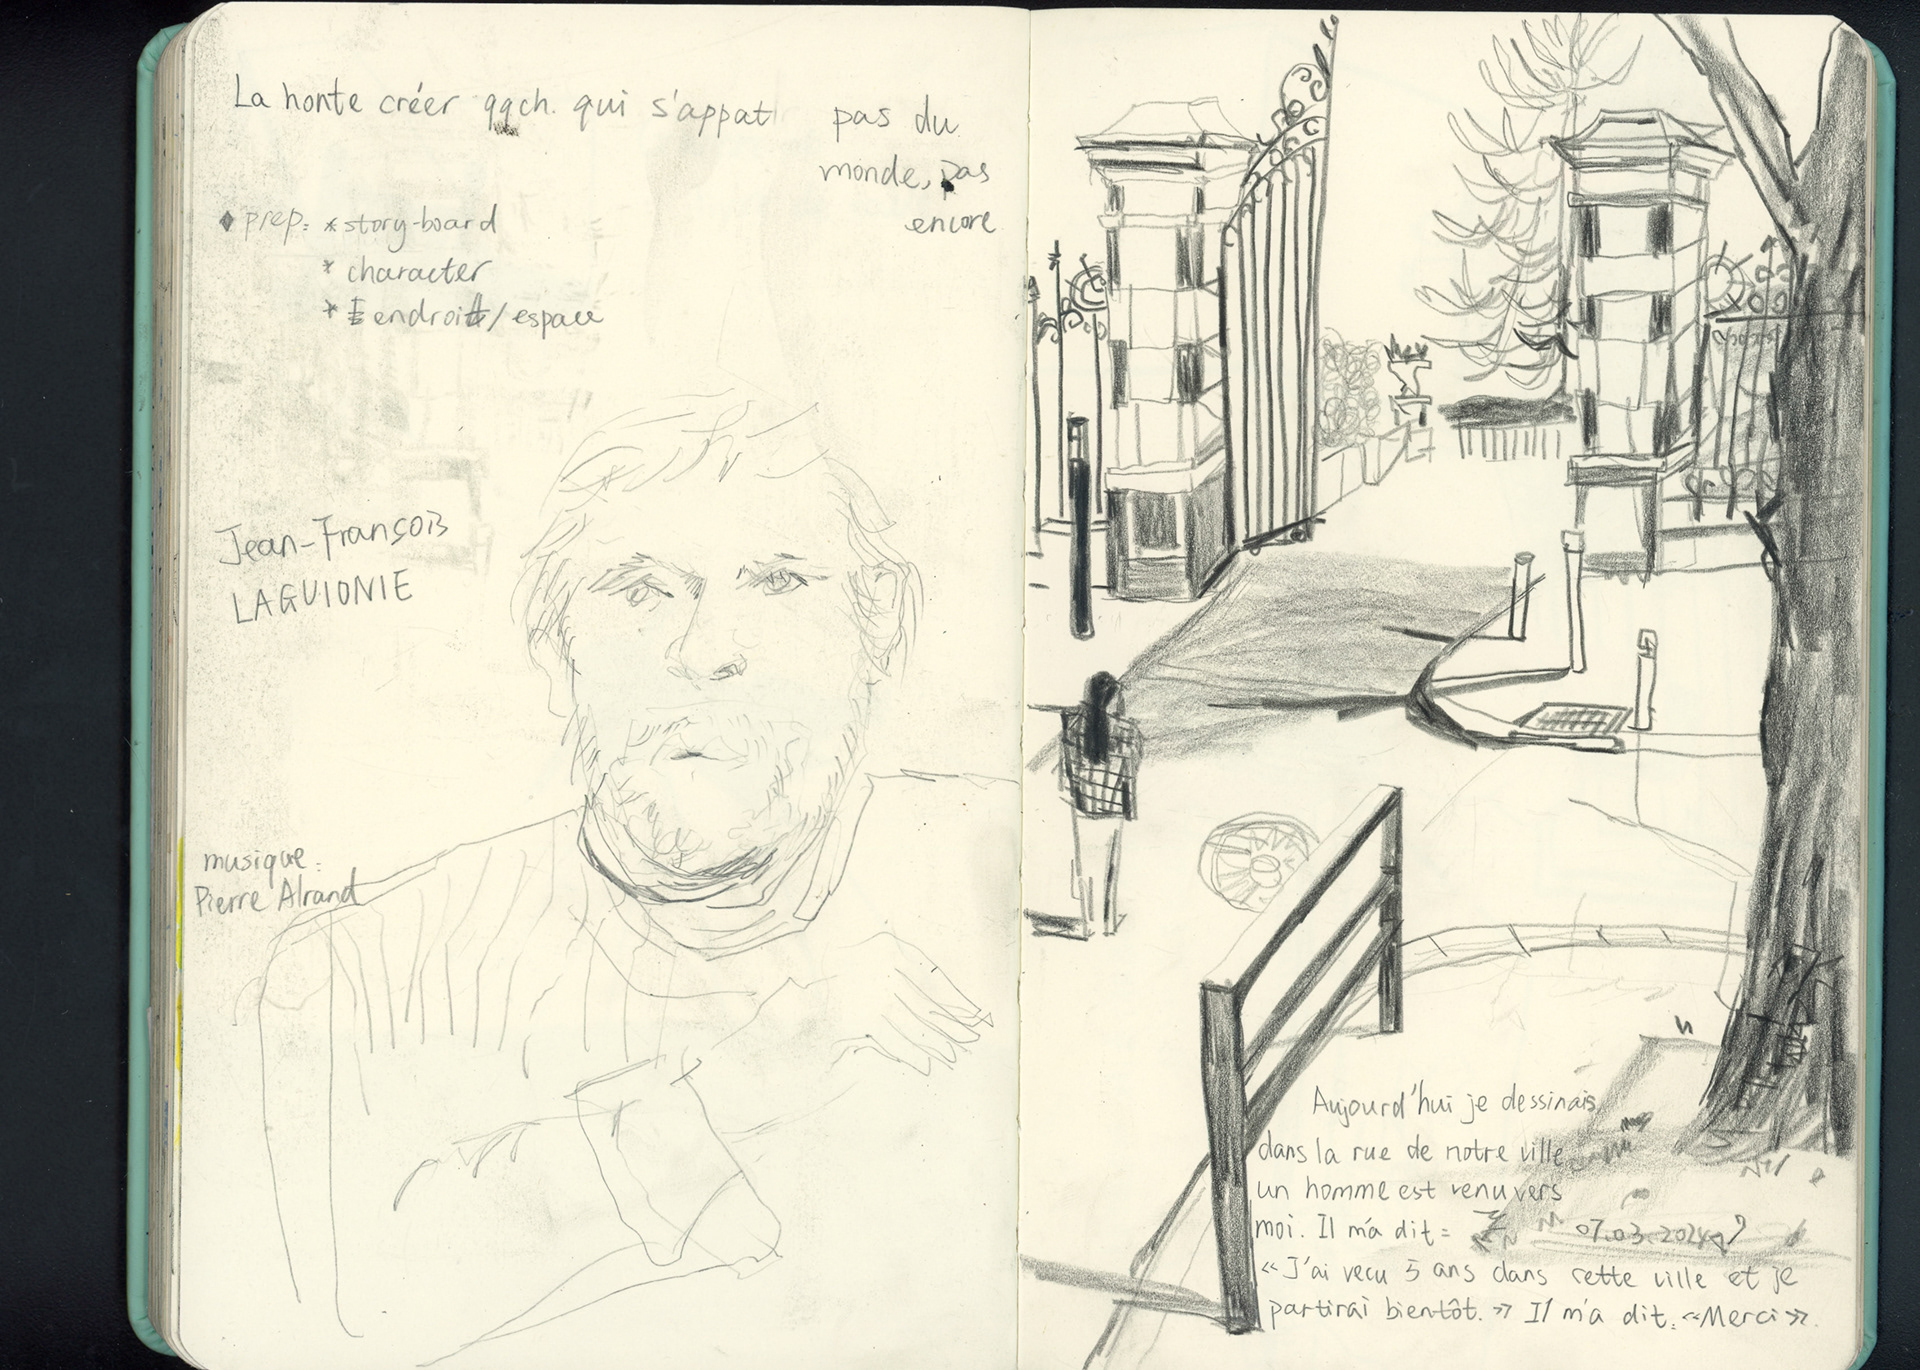 La honte créer qqch. qui s'appat pas du
monde, pas
encore
prep: * story-board
* character
* endroit/espace
Jean-François
LAGUIONIE
musique:
Pierre Alrand
Aujourd'hui je dessinais
dans la rue de notre ville
un homme est venu vers
moi. Il m'a dit:
07.03.2024
«J'ai vecu 5 ans dans cette ville et je
partirai bientôt.» Il m'a dit: «Merci».